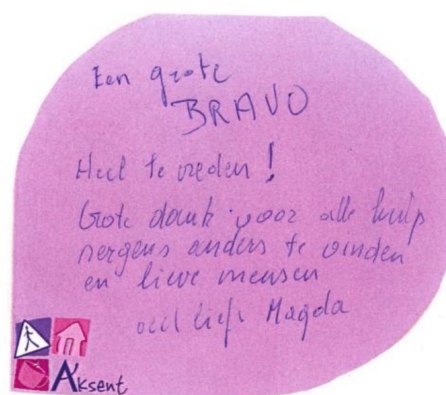 Een grote
BRAVO
Heel te vreden !
Grote dank voor alle hulp
nergens anders te vinden
en lieve mensen
veel liefs Magda
Aksent